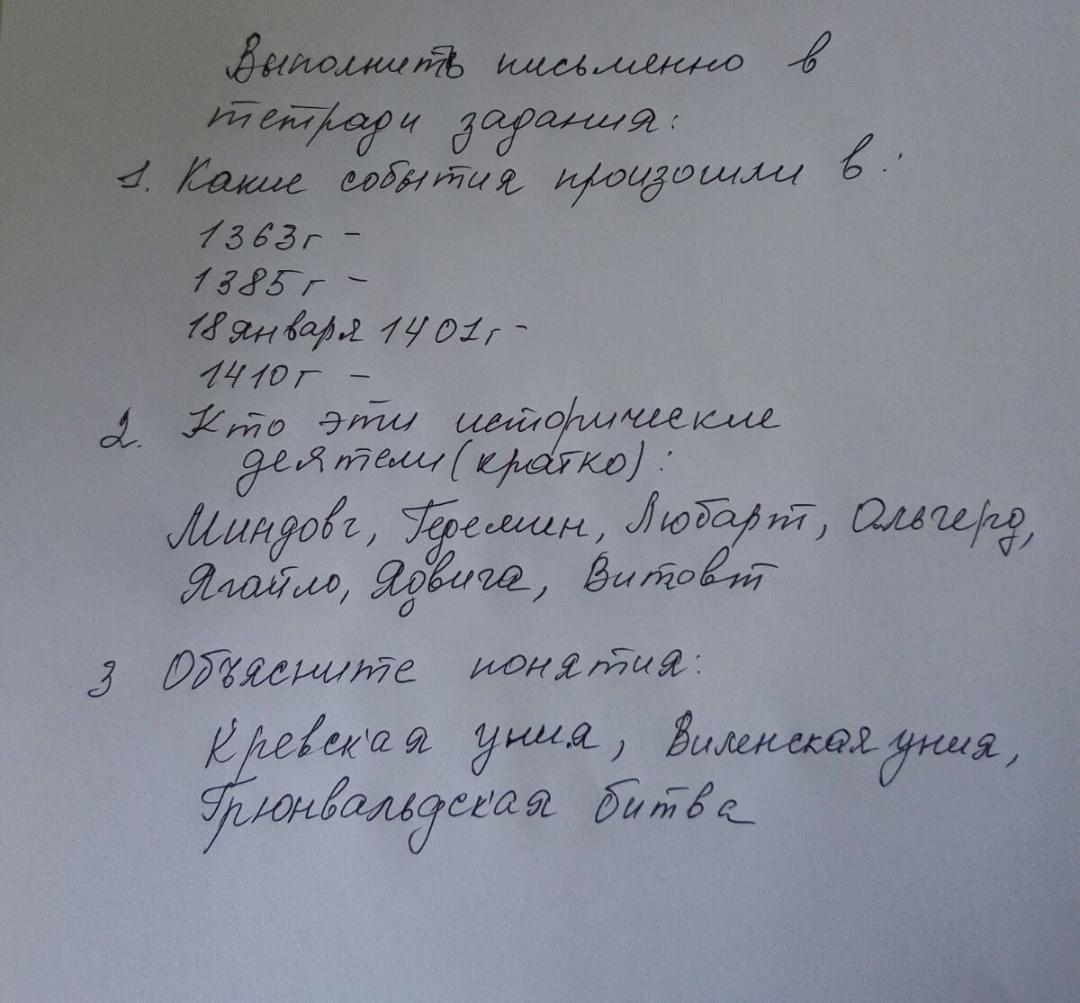 Выполнить письменно в
тетради задания:
1. Какие события произошли в:
1363г -
1385г -
18 января 1401г -
1410г -
2. Кто эти исторические
деятели (кратко):
Миндовг, Гедемин, Любарт, Ольгерд,
Ягайло, Ядвига, Витовт
3 Объясните понятия:
Кревская уния, Виленская уния,
Грюнвальдская битва